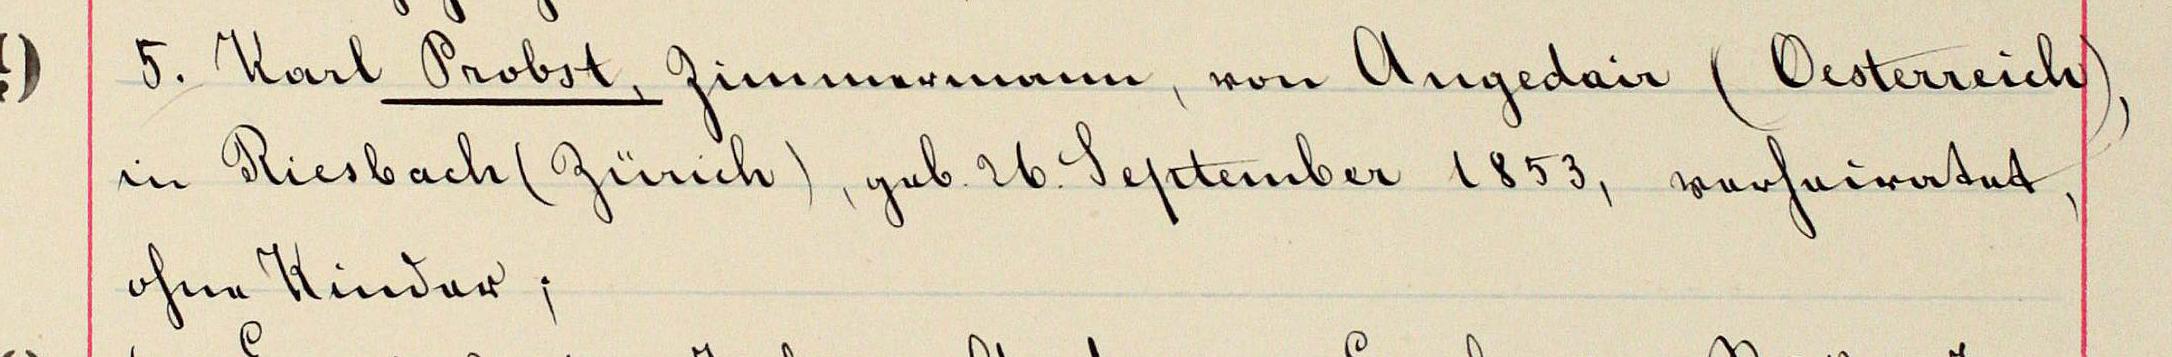 5. Karl Probst, Zimmermann, von Angedair (Oesterreich),
in Riesbach (Zürich), geb. 26. September 1853, verheiratet,
ohne Kinder;